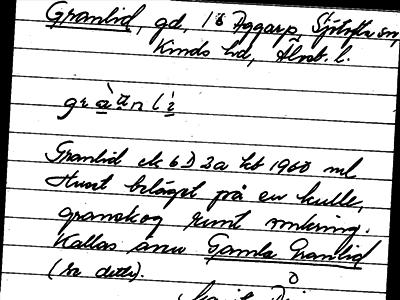 Granlid, gd, 18 Aggarp, Sjötofta sn,
Kinds hd, Älvsb. l.
Granlid ek 6D 2a kb 1960 ml
Huset beläget på en kulle,
granskog runt omkring.
Kallas även Gamla Granlid
(se detta).